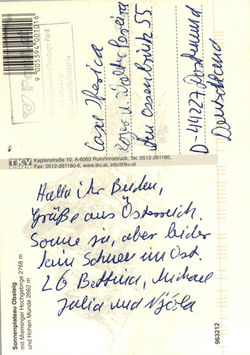 Hallo ihr Beiden,
Grüße aus Österreich.
Sonne ja, aber leider
kein Schnee im Ort.
LG Bettina, Michael
Julia und
Deutschland
D-44227 Dortmund
55
Postage Paid
9 003394 201316
TKV Kaplanstraße 10, A-6063 Rum/Innsbruck, Tel. 0512-261180,
Fax. 0512-261180-6, www.tkv.at, info@tkv.at
Sonnenplateau Obsteig
mit Mieminger Hochgebirge 2768 m
und Hohen Munde 2662 m
963212